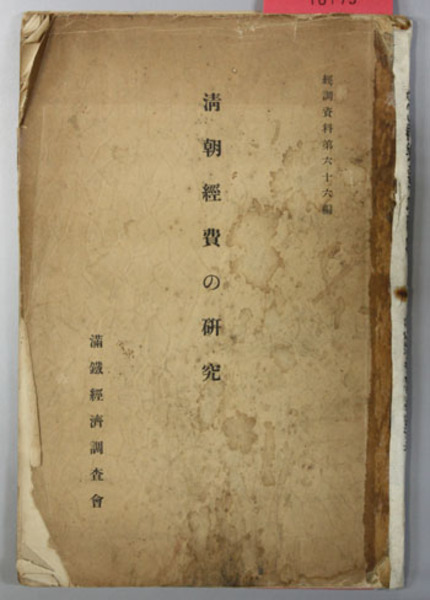 經調資料第六十六編
淸朝經費の硏究
滿鐵經濟調査會